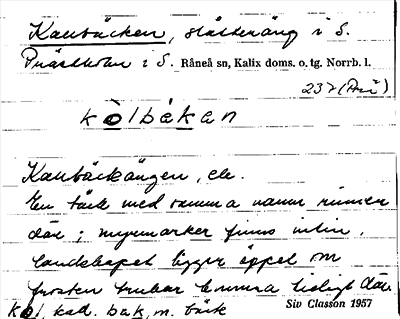 Kallbäcken, slåtteräng i S.
Prästholm i S. Råneå sn, Kalix doms. o. tg. Norrb. l.
232
kòlbäkan
Kallbäckängen, ele.
En bäck med samma namn rinner
där; myrmarker finns intill,
landskapet ligger öppet om
frosten brukar komma tidigt där.
kol, kad. bäk, m. bäck
Siv Classon 1957